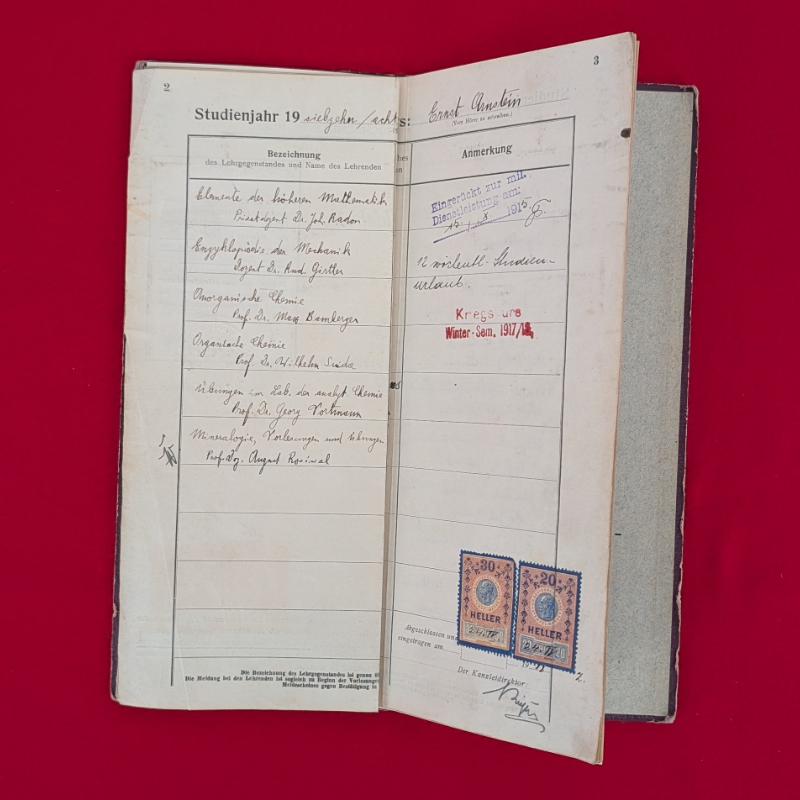 2
Studienjahr 19 siebzehn/acht
Bezeichnung
des Lehrgegenstandes und Name des Lehrenden
Elemente der höheren Mathematik
Privatdozent Dr. Joh. Radon
Enzyklopädie der Mechanik
Dozent Dr. Rud. Girtler
Anorganische Chemie
Prof. Dr. Max Bamberger
Organische Chemie
Prof. Dr. Wilhelm Suida
Übungen im Lab. der analyt. Chemie
Prof. Dr. Georg Vortmann
Mineralogie, Vorlesungen und Übungen
Prof. Doz. August Rosiwal
Die Bezeichnung des Lehrgegenstandes ist genau
Die Meldung bei den Lehrenden ist sogleich zu Beginn der Vorlesungen
Meldescheines gegen Bestätigung in
3
s: Ernst Arnstein
(Vom Hörer zu schreiben.)
hes
en
Anmerkung
Eingerückt zur mil.
Dienstleistung am:
15. X. 1915
12 wöchentl. Studien-
urlaub.
Kriegs
Winter-Sem. 1917/18
30
HELLER
20
HELLER
Abgeschlossen und
eingetragen am
Der Kanzleidirektor